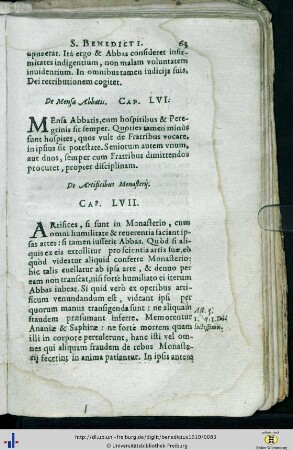 S. BENEDICTI. 63
opus erat. Ita ergo & Abbas consideret infir-
mitates indigentium, non malam voluntatem
inuidentium. In omnibus tamen iudicijs suis,
Dei retributionem cogitet.
De Mensa Abbatis. CAP. LVI.
MEnsa Abbatis, cum hospitibus & Pere-
grinis sit semper. Quoties tamen minùs
sunt hospites, quos vult de Fratribus vocare,
in ipsius sit potestate. Seniorum autem vnum,
aut duos, semper cum Fratribus dimittendos
procuret, propter disciplinam.
De Artificibus Monasterij.
CAP. LVII.
ARtifices, si sunt in Monasterio, cum
omni humilitate & reuerentia faciant ip-
sas artes: si tamen iusserit Abbas. Quòd si ali-
quis ex eis extollitur pro scientia artis suæ, eò
quòd videatur aliquid conferre Monasterio:
hic talis euellatur ab ipsa arte, & denuo per
eam non transeat, nisi fortè humiliato ei iterum
Abbas iubeat. Si quid verò ex operibus arti-
ficum venundandum est, videant ipsi per
quorum manus transigenda sunt: ne aliquam
fraudem præsumant inferre. Memorentur
Ananiæ & Saphiræ: ne fortè mortem quam
illi in corpore pertulerunt, hanc isti vel om-
nes qui aliquam fraudem de rebus Monaste-
rij fecerint, in anima patiantur. In ipsis autem
Act. 5.
http://dl.ub.uni-freiburg.de/diglit/benedictus1610/0083
© Universitätsbibliothek Freiburg